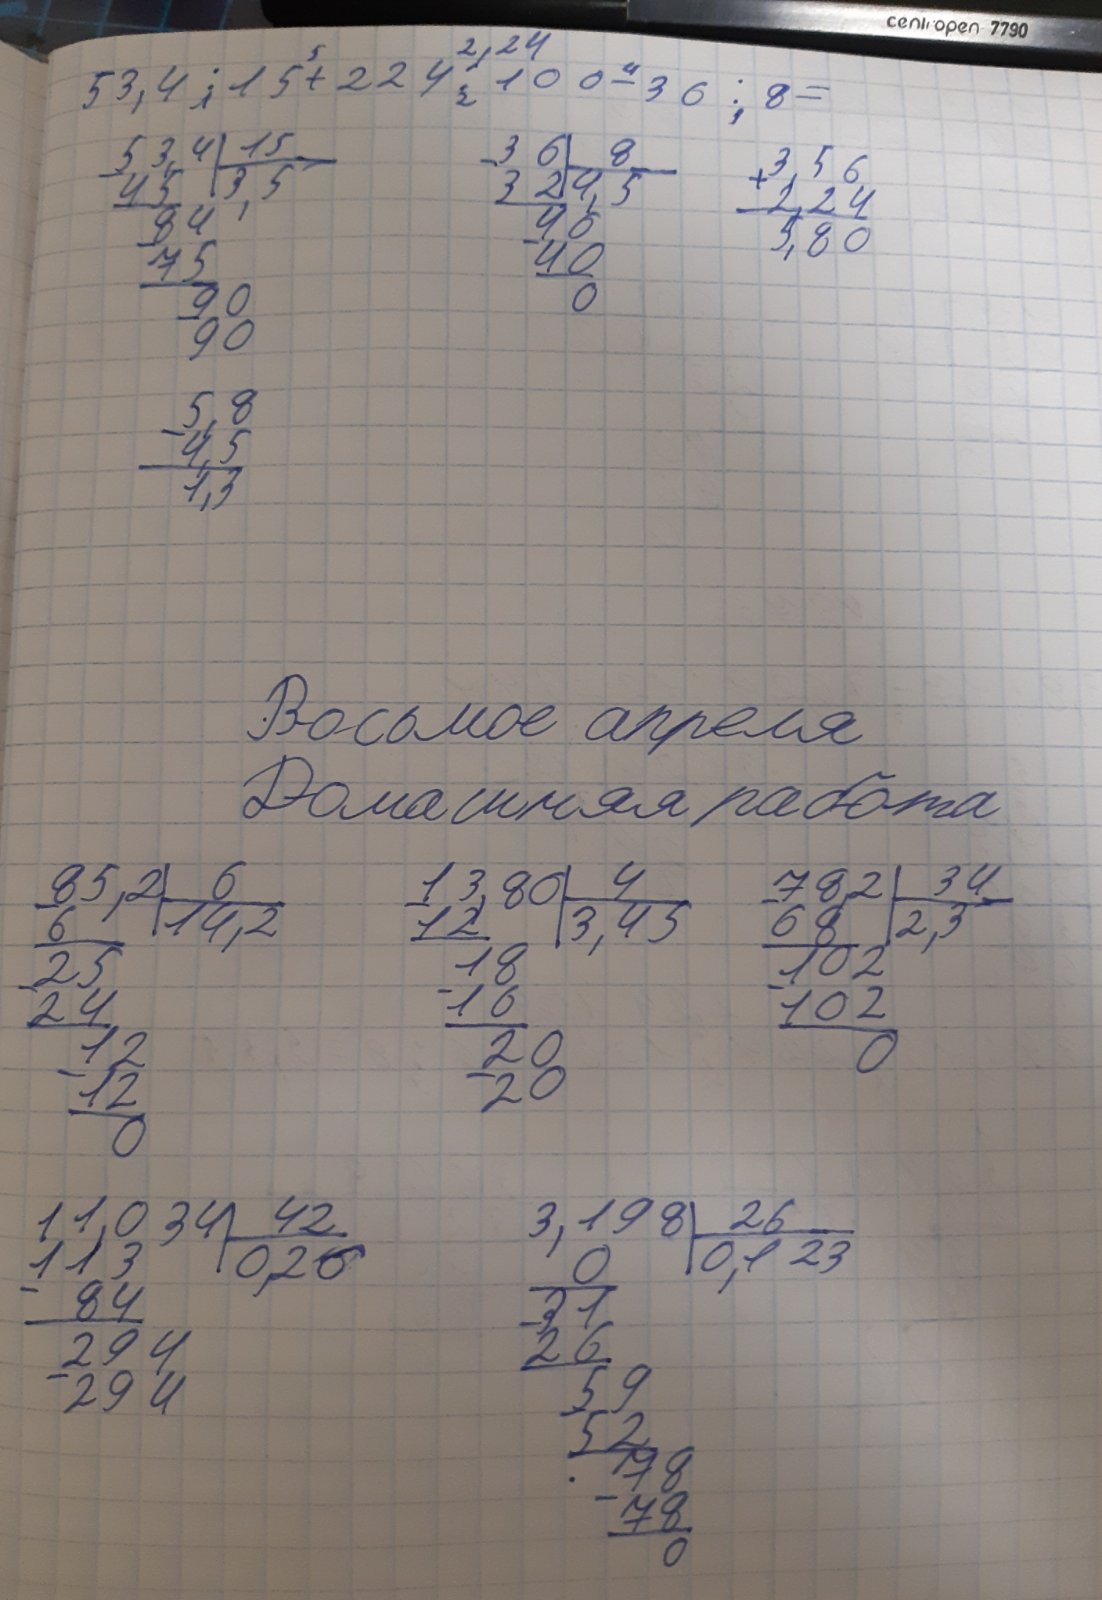 centropen 7790
2,24
53,4 : 15 + 224 : 100 - 36 : 8 =
53,4 15 - 36 8 + 3,56
- 45 3,5 32 4,5 2,24
- 84 - 40 5,80
75 40
- 90 0
90
- 5,8
4,5
1,3
Восьмое апреля
Домашняя работа
- 85,2 6 - 13,80 4 - 78,2 34
6 14,2 12 3,45 68 2,3
- 25 - 18 - 102
24 16 102
- 12 - 20 0
12 20
0
11,034 42 3,198 26
113 0,26 0 0,123
- 84 - 31
- 294 26
294 59
52
- 78
78
0